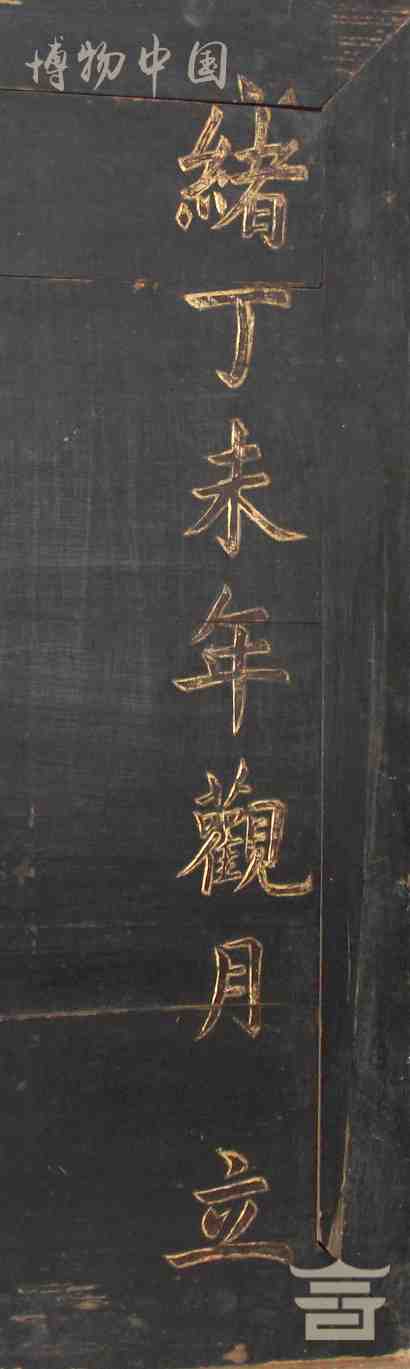 博物中国
緒丁未年觀月立